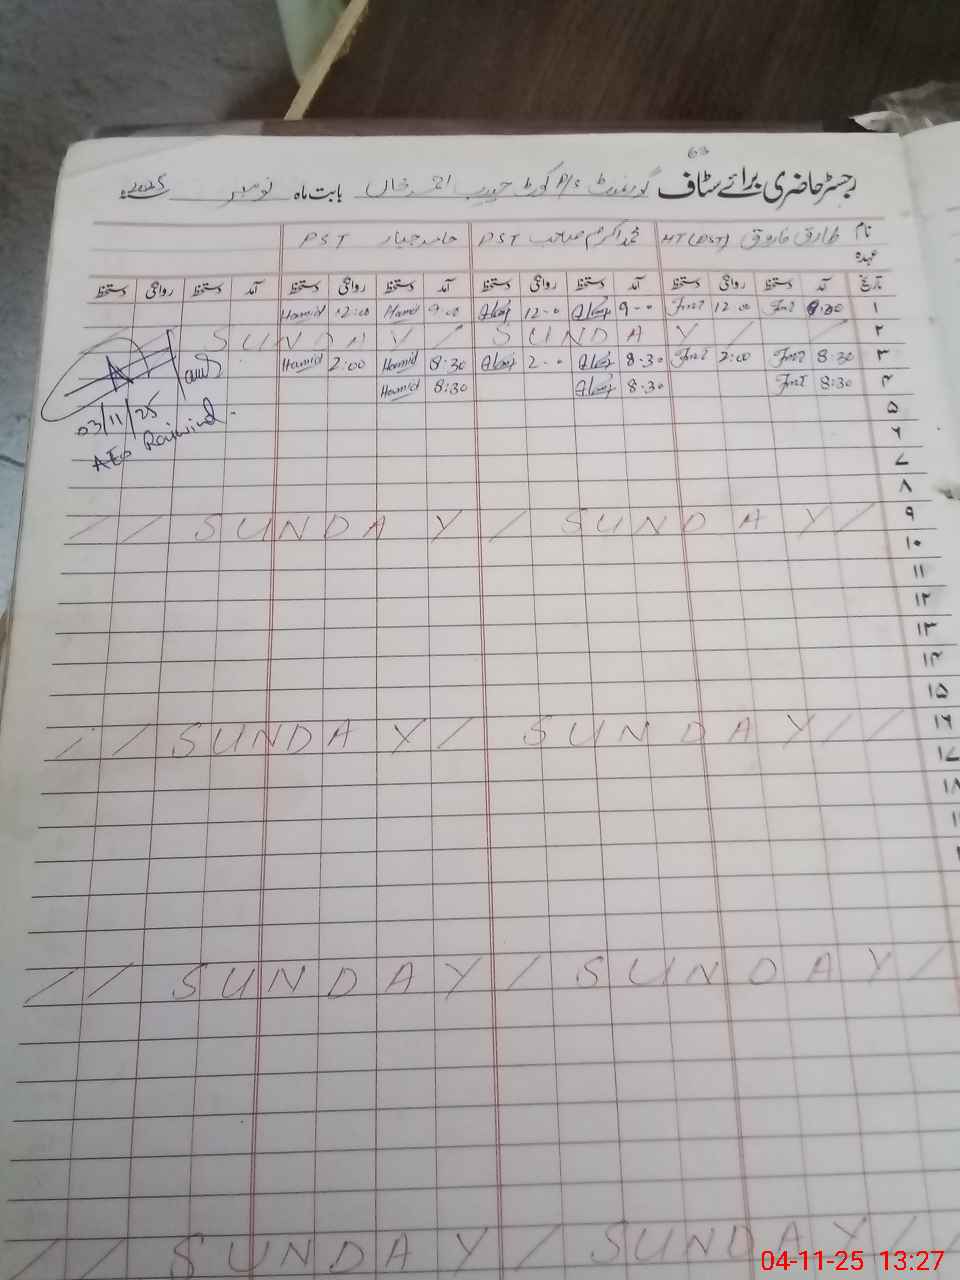 63
رجسٹر حاضری برائے سٹاف گورنمنٹ P/S کوٹ حبیب احمد خاں بابت ماہ نومبر 2025ء
نام طارق فاروق HT (PST) محمد اکرم صاحب PST حامد جبار PST
عہدہ
تاریخ آمد دستخط روانگی دستخط آمد دستخط روانگی دستخط آمد دستخط روانگی دستخط آمد دستخط روانگی دستخط
۱ 9:00 12:00 9-00 12-00 9:00 Hamid 12:00 Hamid
۲ SUNDAY / SUNDAY / /
۳ 8:30 2:00 8-30 2-00 8:30 Hamid 2:00 Hamid
۴ 8:30 8-30 8:30 Hamid
03/11/25
AEO Raiwind
۵
۶
۷
۸
۹ / / SUNDAY / SUNDAY /
۱۰
۱۱
۱۲
۱۳
۱۴
۱۵
۱۶ / / SUNDAY / SUNDAY / /
۱۷
۱۸
/ / SUNDAY / SUNDAY /
/ / SUNDAY / SUNDAY /
04-11-25 13:27